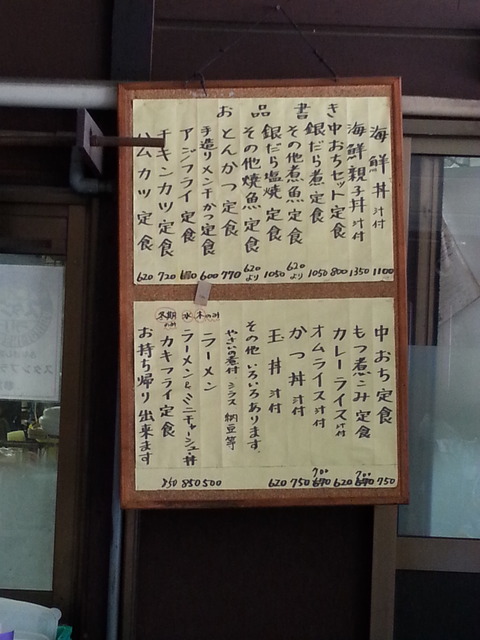 お品書き
海鮮丼 汁付 1100
海鮮親子丼 汁付 1350
中おちセット定食 800
銀だら煮定食 1050
その他煮魚定食 620より
銀だら塩焼定食 1050
その他焼魚定食 620より
とんかつ定食 770
手造りメンチかつ定食 600
アジフライ定食
チキンカツ定食 720
ハムカツ定食 620
中おち定食 750
もつ煮こみ定食 700 670
カレーライス汁付 620
オムライス汁付 700 670
かつ丼汁付 750
玉丼汁付 620
その他いろいろあります。
やさいの煮付 シラス 納豆 等
ラーメン 500
水 木のみ
ラーメン&ミニチャーシュー丼 850
冬期のみ
カキフライ定食 850
お持ち帰り出来ます
スタンプラ